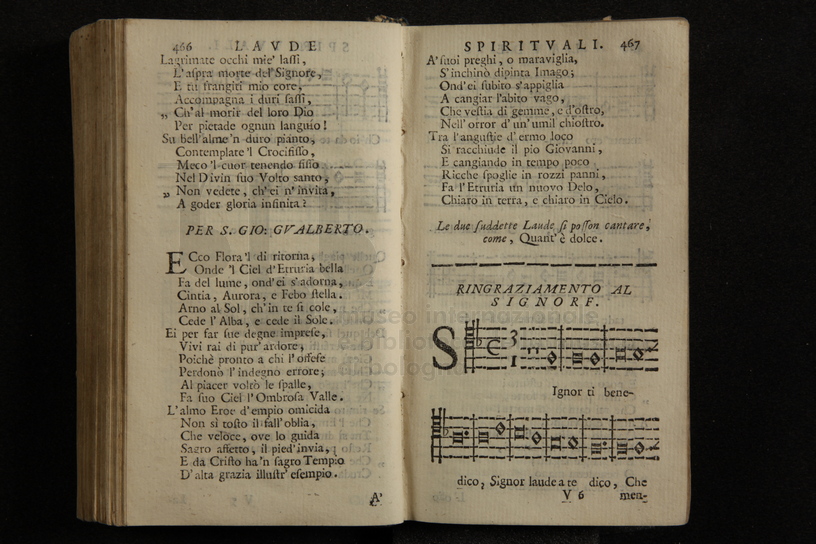 466 LAVDE
Lagrimate occhi mie' lassi,
L'aspra morte del Signore,
E tu frangiti mio core,
Accompagna i duri sassi,
„ Ch'al morir del loro Dio
Per pietade ognun languìo!
Su bell'alme 'n duro pianto,
Contemplate 'l Crocifisso,
Meco 'l cuor tenendo fisso
Nel Divin suo Volto santo,
„ Non vedete, ch'ei n'invita,
A goder gloria infinita?
PER S. GIO: GVALBERTO.
ECco Flora 'l dì ritorna,
Onde 'l Ciel d'Etruria bella
Fa del lume, ond'ei s'adorna,
Cintia, Aurora, e Febo stella.
Arno al Sol, ch'in te si cole,
Cede l'Alba, e cede il Sole.
Ei per far sue degne imprese,
Vivi rai di pur'ardore,
Poichè pronto a chi l'offese
Perdonò l'indegno errore;
Al piacer voltò le spalle,
Fa suo Ciel l'Ombrosa Valle.
L'almo Eroe d'empio omicida
Non sì tosto il fall'oblia,
Che veloce, ove lo guida
Sagro affetto, il pied'invia,
E da Cristo ha'n sagro Tempio
D'alta grazia illustr'esempio.
A'
SPIRITVALI. 467
A' suoi preghi, o maraviglia,
S'inchinò dipinta Imago;
Ond'ei subito s'appiglia
A cangiar l'abito vago,
Che vestìa di gemme, e d'ostro,
Nell'orror d'un'umil chiostro.
Tra l'angustie d'ermo loco
Si racchiude il pio Giovanni,
E cangiando in tempo poco
Ricche spoglie in rozzi panni,
Fa l'Etruria un nuovo Delo,
Chiaro in terra, e chiaro in Cielo.
Le due suddette Laude si posson cantare,
come, Quant'è dolce.
RINGRAZIAMENTO AL
SIGNORE.
S
C 3
1
Ignor ti bene-
dico, Signor laude a te dico, Che
V 6 men-